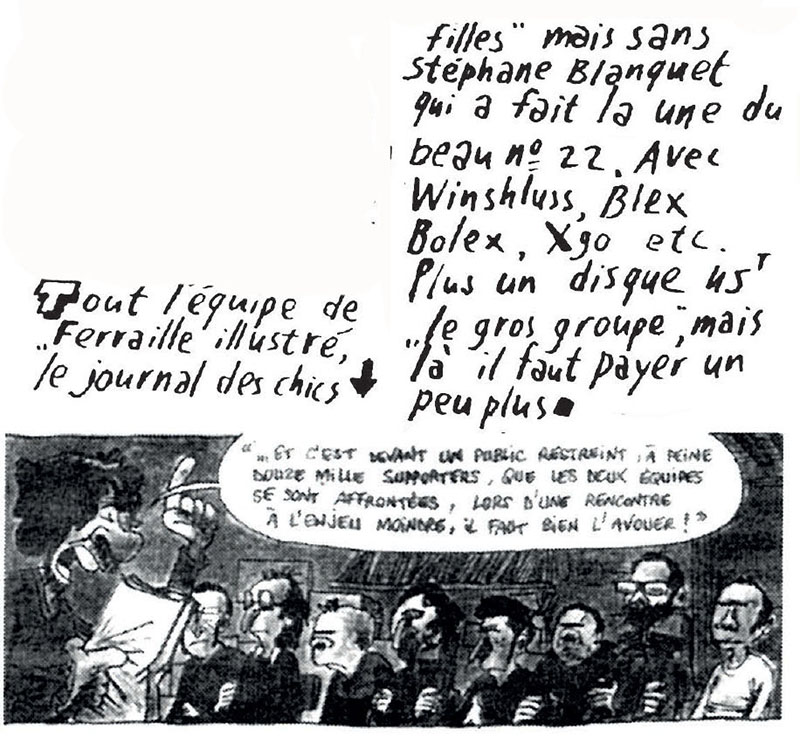 Tout l'équipe de
„Ferraille illustré,
le journal des chics
filles" mais sans
Stéphane Blanquet
qui a fait la une du
beau nº 22. Avec
Winshluss, Blex
Bolex, Xgo etc.
Plus un disque us
„le gros groupe", mais
là il faut payer un
peu plus
"... ET C'EST DEVANT UN PUBLIC RESTREINT, À PEINE
DOUZE MILLE SUPPORTERS, QUE LES DEUX ÉQUIPES
SE SONT AFFRONTÉES, LORS D'UNE RENCONTRE
À L'ENJEU MOINDRE, IL FAUT BIEN L'AVOUER !"